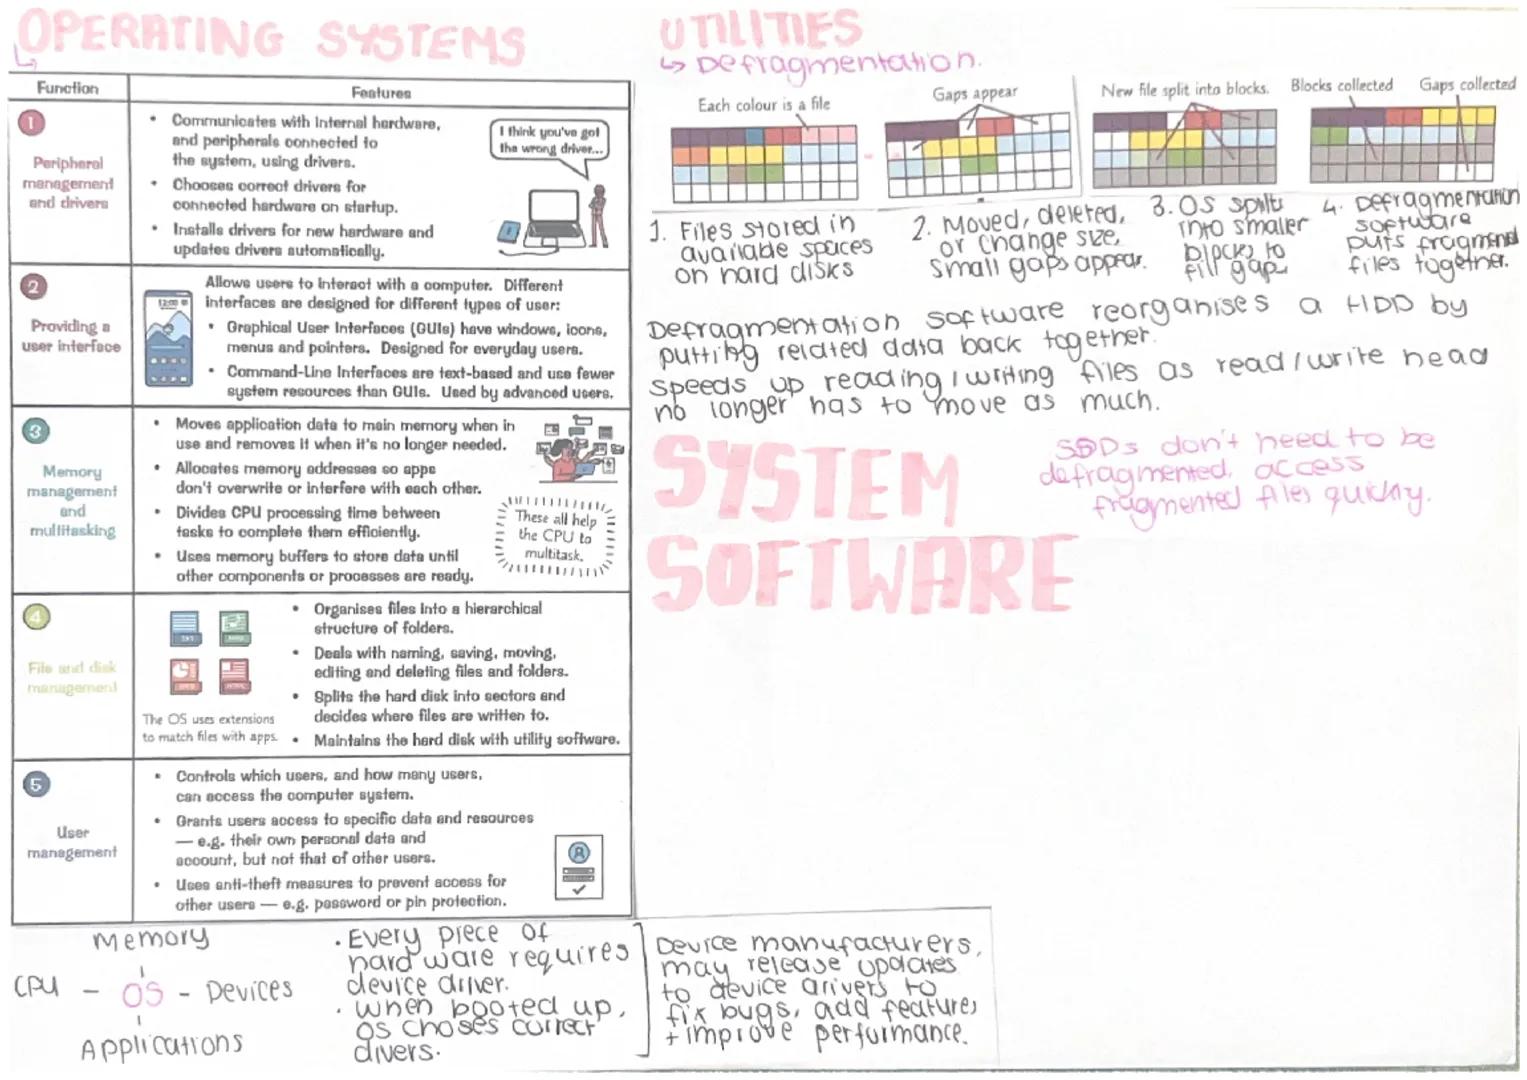 OPERATING SYSTEMS
Function
Features
1
Peripheral
management
and drivers
• Communicates with internal hardware,
and peripherals connected to
the system, using drivers.
• Chooses correct drivers for
connected hardware on startup.
• Installs drivers for new hardware and
updates drivers automatically.
I think you've got
the wrong driver...
2
Providing a
user interface
Allows users to interact with a computer. Different
interfaces are designed for different types of user:
• Graphical User Interfaces (GUIs) have windows, icons,
menus and pointers. Designed for everyday users.
• Command-Line Interfaces are text-based and use fewer
system resources than GUIs. Used by advanced users.
12:00
3
Memory
management
and
multitasking
• Moves application data to main memory when in
use and removes it when it's no longer needed.
• Allocates memory addresses so apps
don't overwrite or interfere with each other.
• Divides CPU processing time between
tasks to complete them efficiently.
• Uses memory buffers to store data until
other components or processes are ready.
These all help
the CPU to
multitask.
4
File and disk
management
The OS uses extensions
to match files with apps.
• Organises files into a hierarchical
structure of folders.
• Deals with naming, saving, moving,
editing and deleting files and folders.
• Splits the hard disk into sectors and
decides where files are written to.
• Maintains the hard disk with utility software.
5
User
management
• Controls which users, and how many users,
can access the computer system.
• Grants users access to specific data and resources
— e.g. their own personal data and
account, but not that of other users.
• Uses anti-theft measures to prevent access for
other users — e.g. password or pin protection.
Memory
CPU - OS - Devices
Applications
• Every piece of
hardware requires
device driver.
• when booted up,
OS choses correct
divers.
Device manufacturers,
may release updates
to device drivers to
fix bugs, add features
+ improve performance.
UTILITIES
↳ Defragmentation.
Each colour is a file
Gaps appear
New file split into blocks.
Blocks collected
Gaps collected
1. Files stored in
available spaces
on hard disks
2. Moved, deleted,
or change size,
small gaps appear.
3. OS splits
into smaller
blocks to
fill gap
4. Defragmentation
software
puts fragmend
files together.
Defragmentation software reorganises a HDD by
putting related data back together.
speeds up reading/writing files as read/write head
no longer has to move as much.
SYSTEM
SOFTWARE
SSDs don't need to be
defragmented, access
fragmented files quickly.